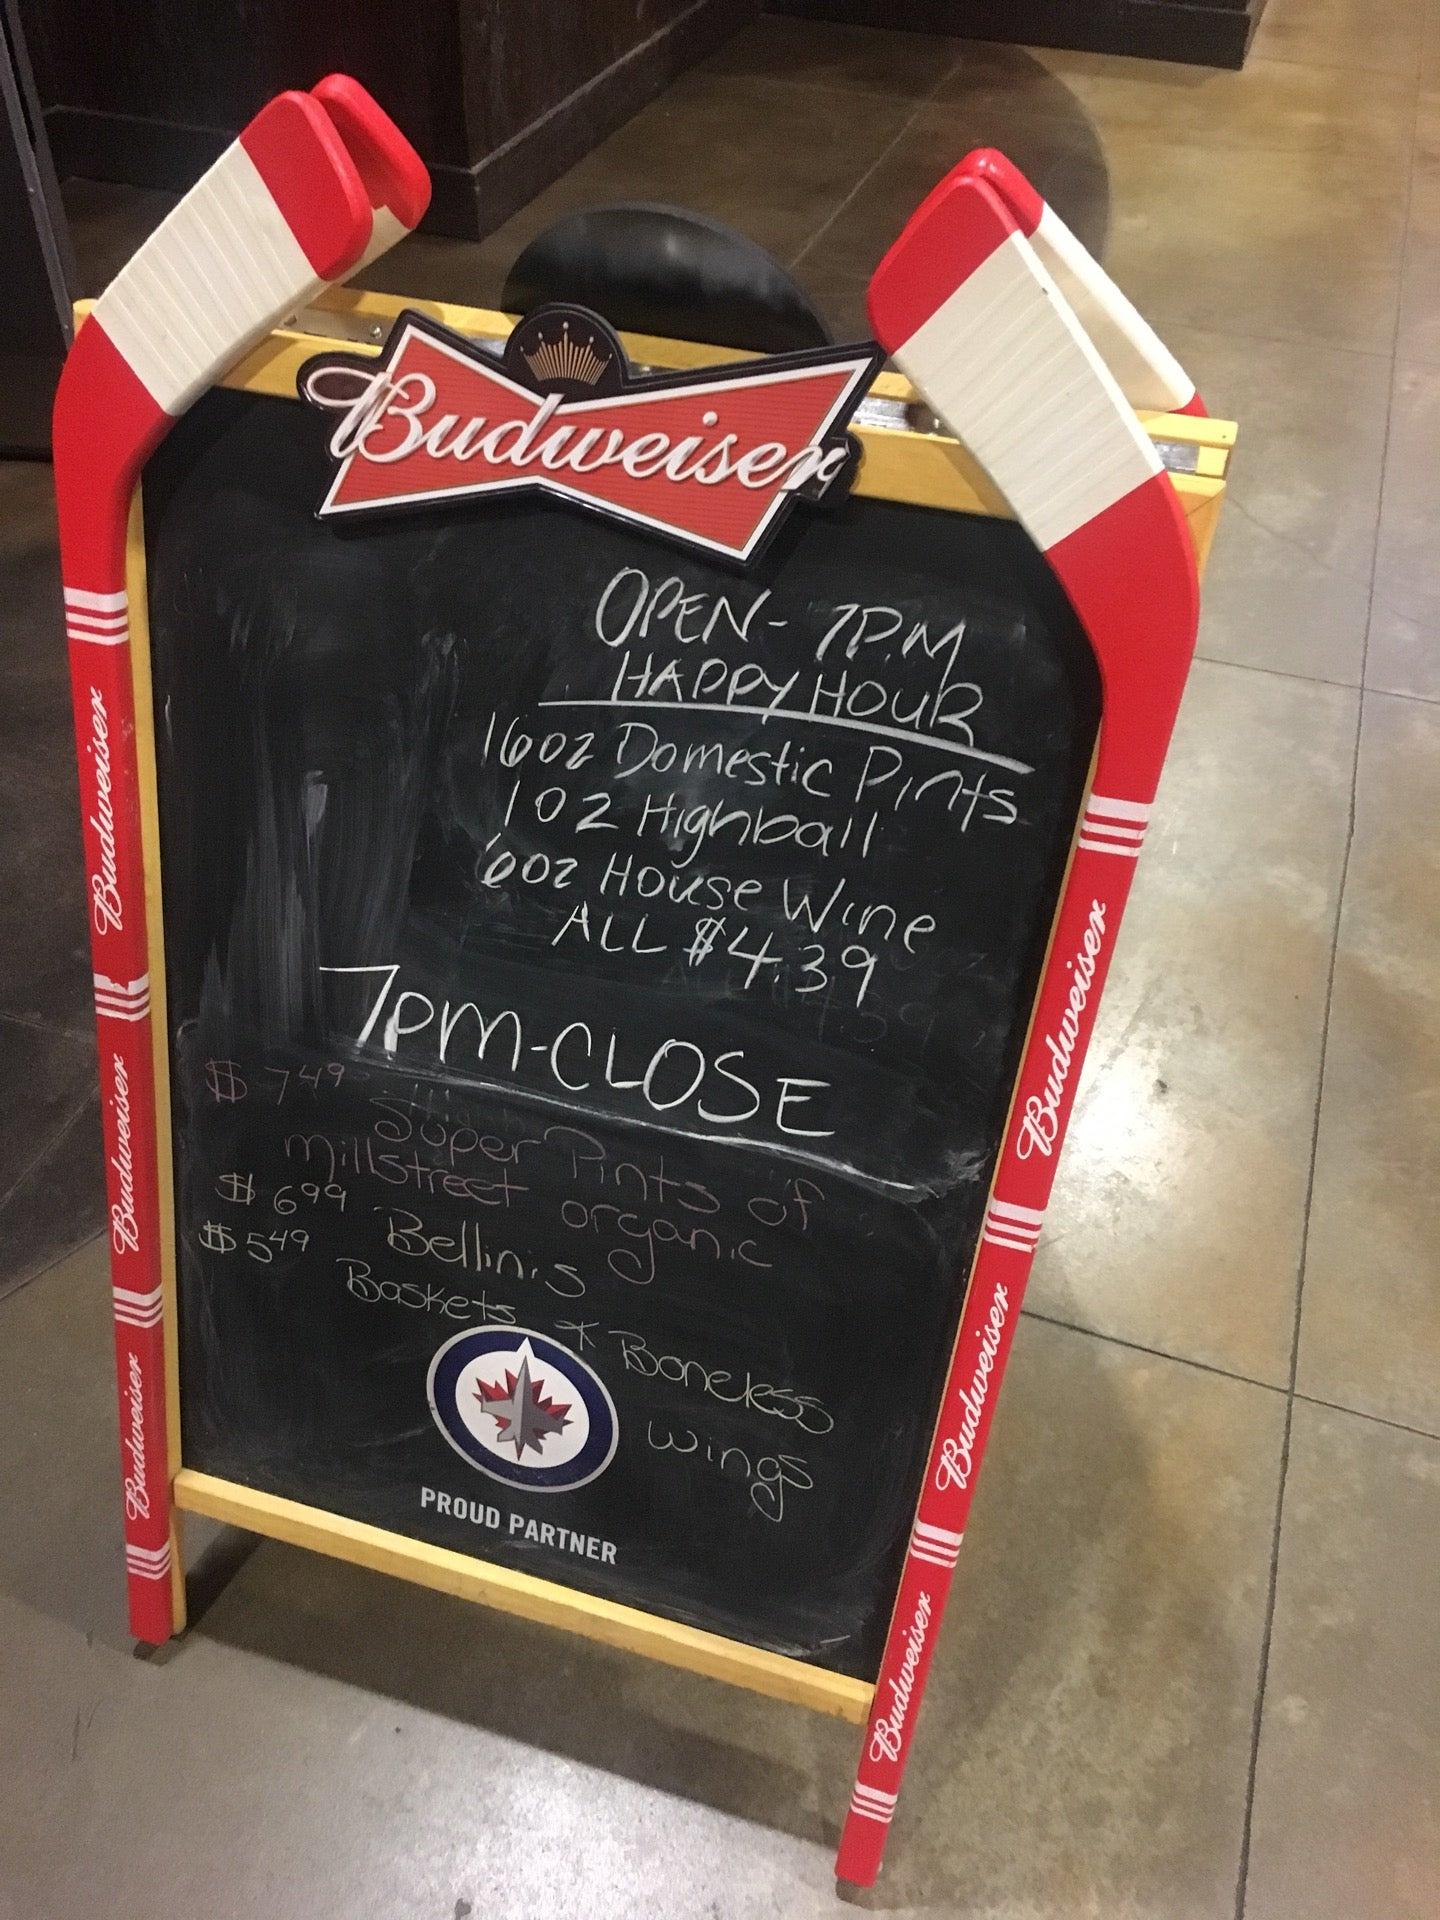 Budweiser
OPEN - 7PM
HAPPY HOUR
16oz Domestic Pints
1 oz Highball
6oz House Wine
ALL $4.39
7PM-CLOSE
$7.49 Super Pints of
Millstreet organic
$6.99 Bellinis
$5.49 Baskets * Boneless
wings
PROUD PARTNER
Budweiser
Budweiser
Budweiser
Budweiser
Budweiser
Budweiser